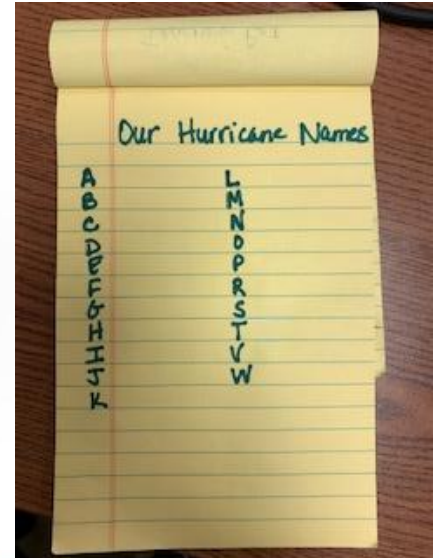 Our Hurricane Names
A
B
C
D
E
F
G
H
I
J
K
L
M
N
O
P
R
S
T
V
W